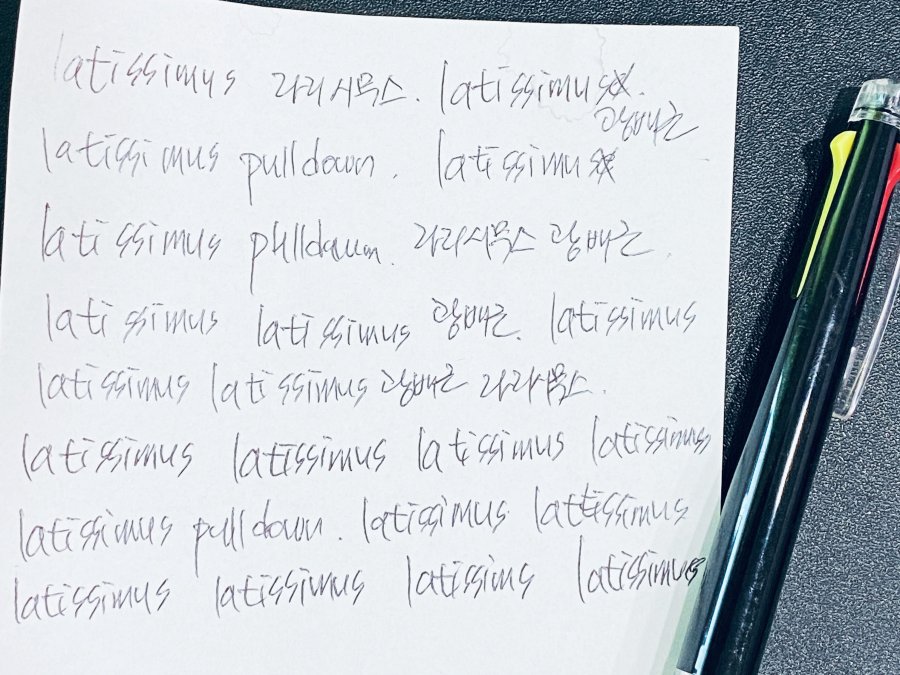 latissimus 라티시무스. latissimus.
광배근
latissimus pulldown. latissimus
latissimus pulldown. 라티시무스 광배근.
latissimus latissimus 광배근. latissimus
latissimus latissimus 광배근 라티시무스.
latissimus latissimus latissimus latissimus
latissimus pulldown. latissimus latissimus
latissimus latissimus latissims latissimus